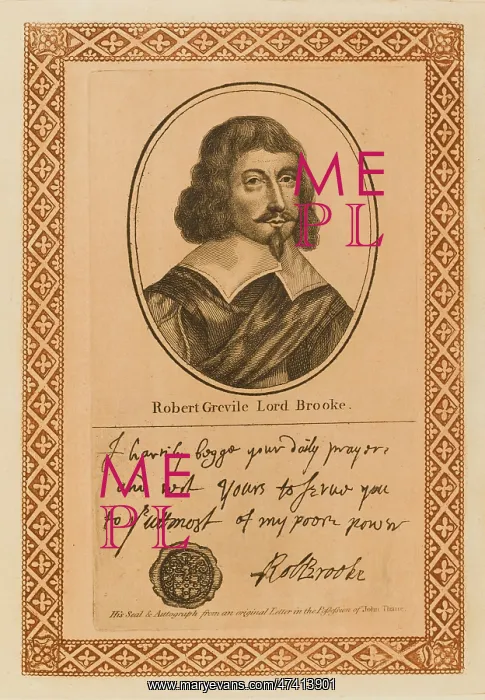 ME
PL
Robert Grevile Lord Brooke.
I hartily begge your daily prayers
and rest Yours to serue you
to ye utmost of my poore power
ME
PL
RobBrooke
His Seal & Autograph from an original Letter in the Possession of John Thane.
www.maryevans.com/47413901